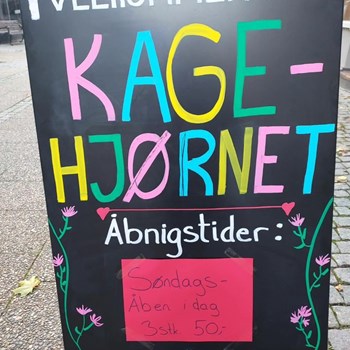 VELKOMMEN
KAGE-
HJØRNET
Åbnigstider:
Søndags-
Åben i dag
3stk 50,-